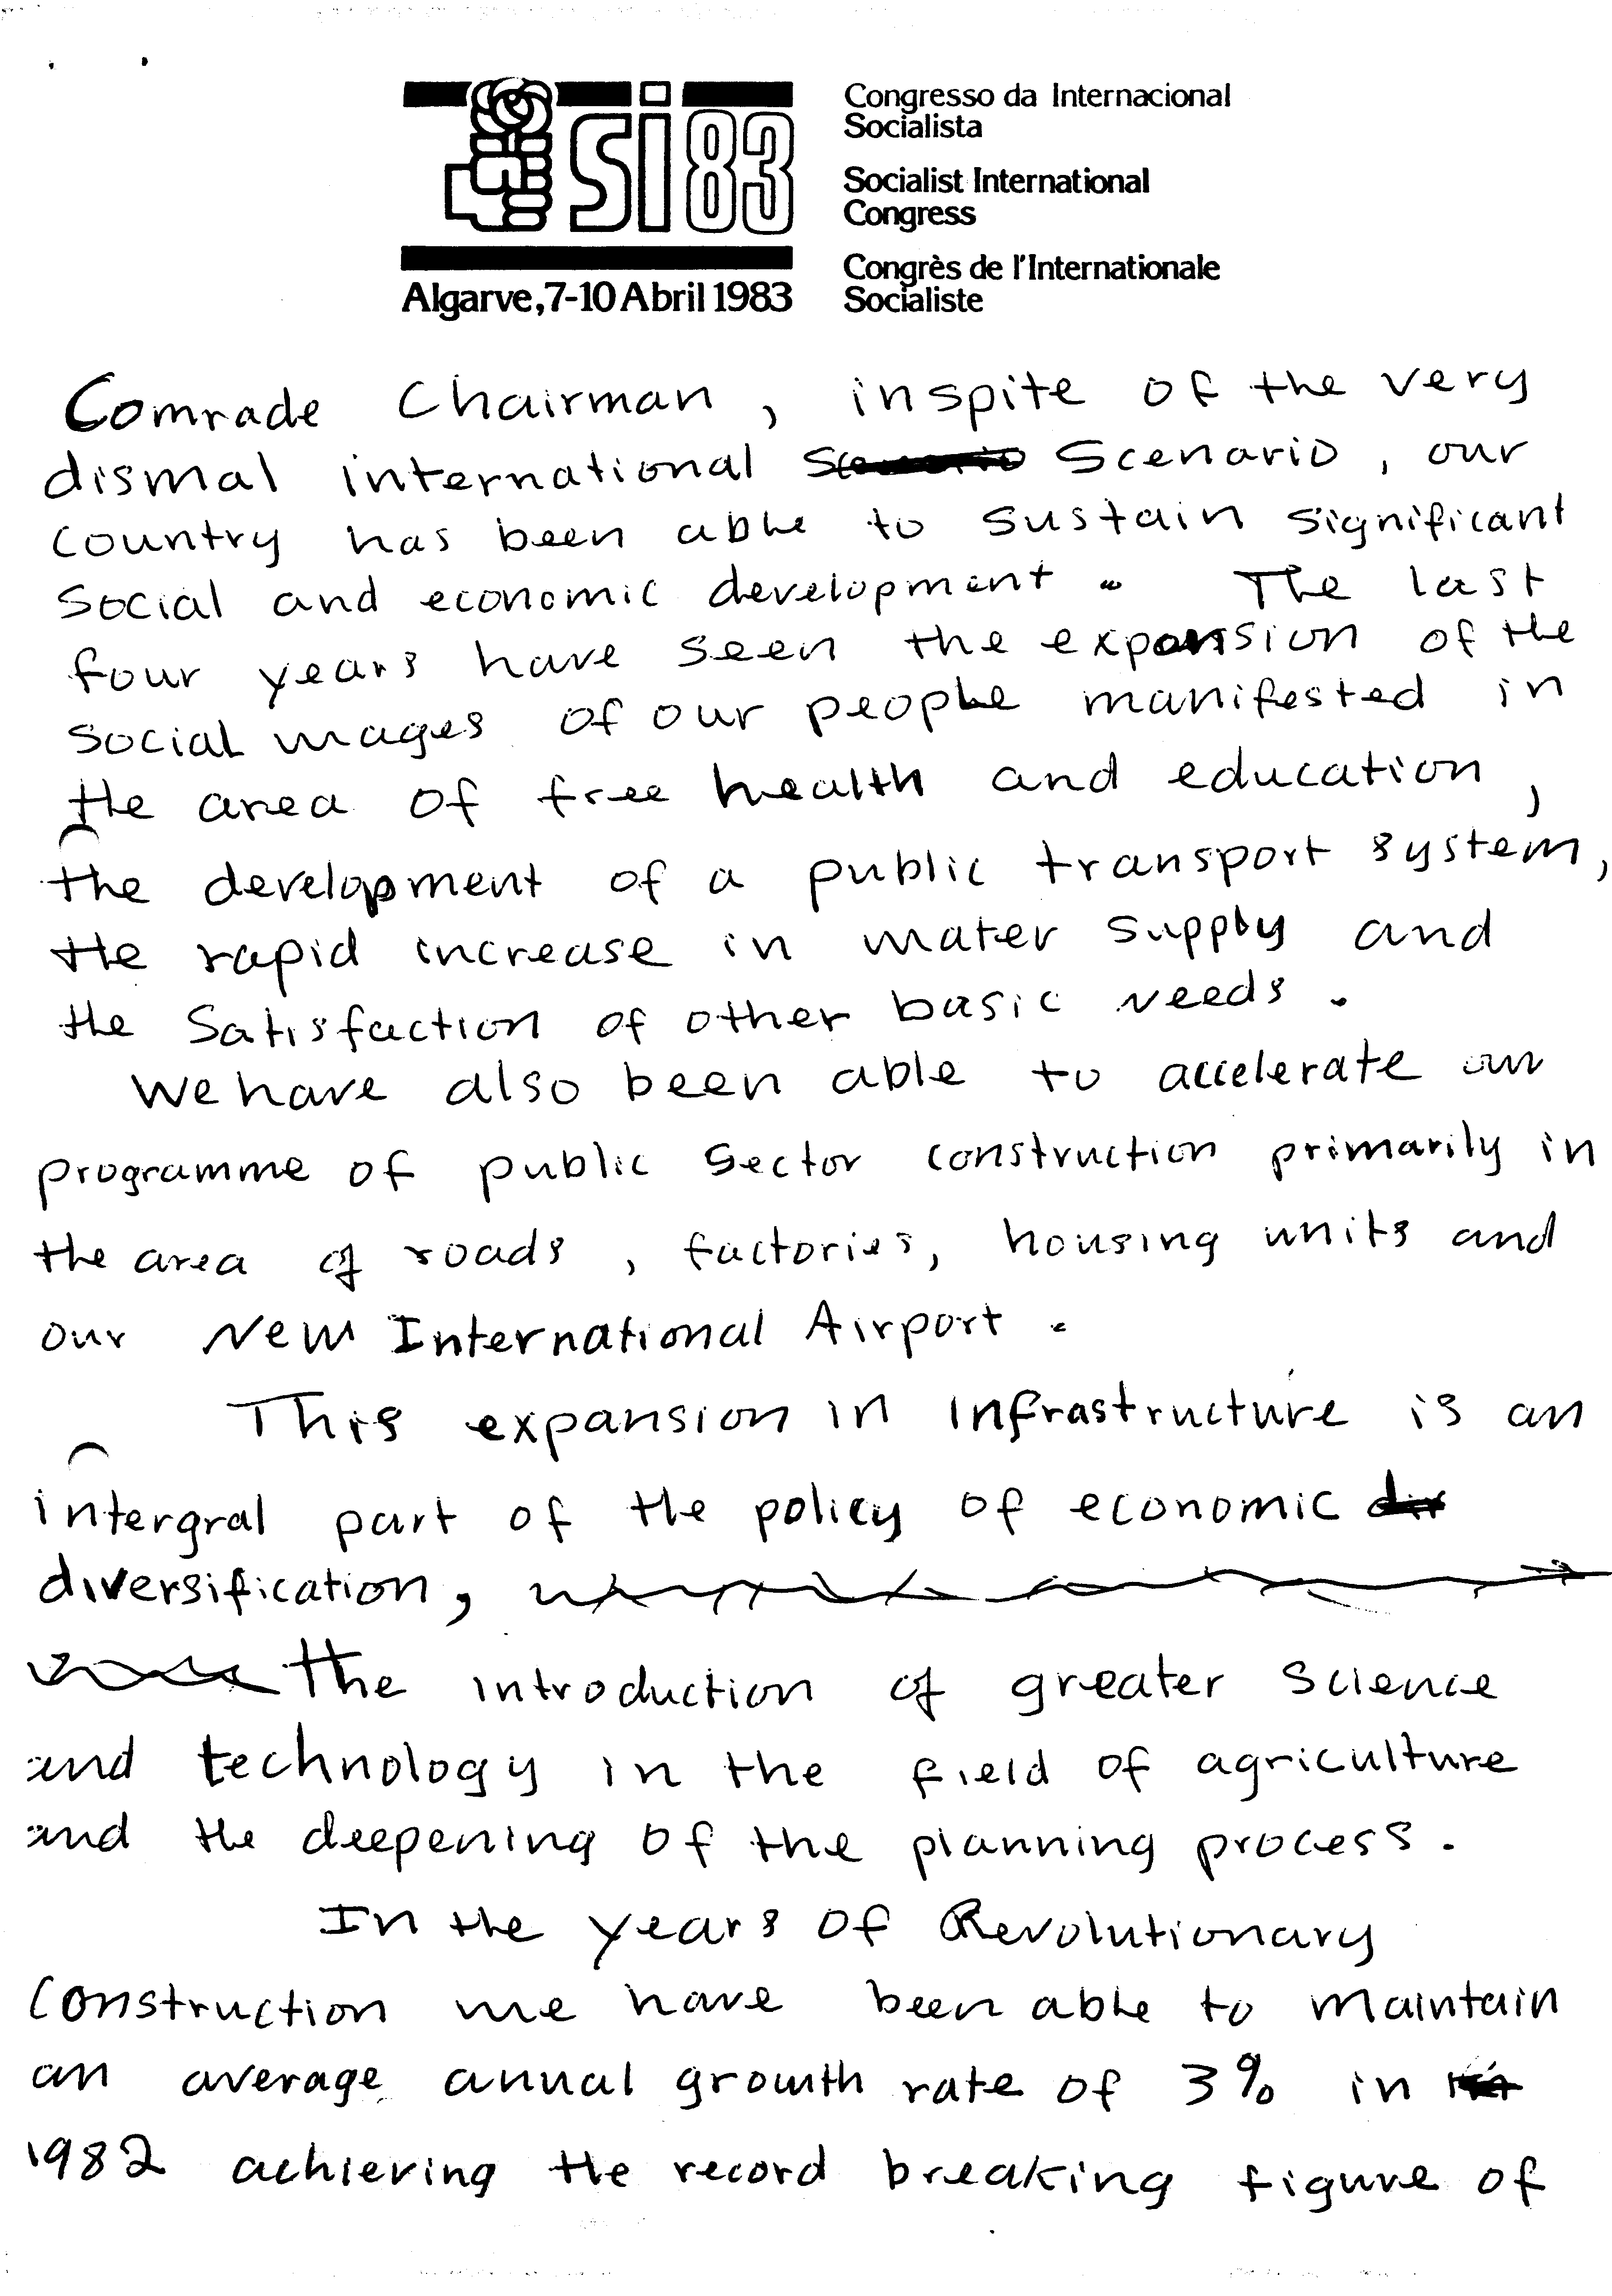 si83
Algarve, 7-10 Abril 1983
Congresso da Internacional
Socialista
Socialist International
Congress
Congrès de l'Internationale
Socialiste
Comrade Chairman, inspite of the very
dismal international Scenario Scenario, our
country has been able to sustain significant
social and economic development. The last
four years have seen the expansion of the
social wages of our people manifested in
the area of free health and education,
the development of a public transport system,
the rapid increase in water supply and
the satisfaction of other basic needs.
We have also been able to accelerate our
programme of public sector construction primarily in
the area of roads, factories, housing units and
our New International Airport.
This expansion in infrastructure is an
intergral part of the policy of economic div
diversification,
the introduction of greater science
and technology in the field of agriculture
and the deepening of the planning process.
In the years of Revolutionary
Construction we have been able to maintain
an average annual growth rate of 3% in
1982 achieving the record breaking figure of